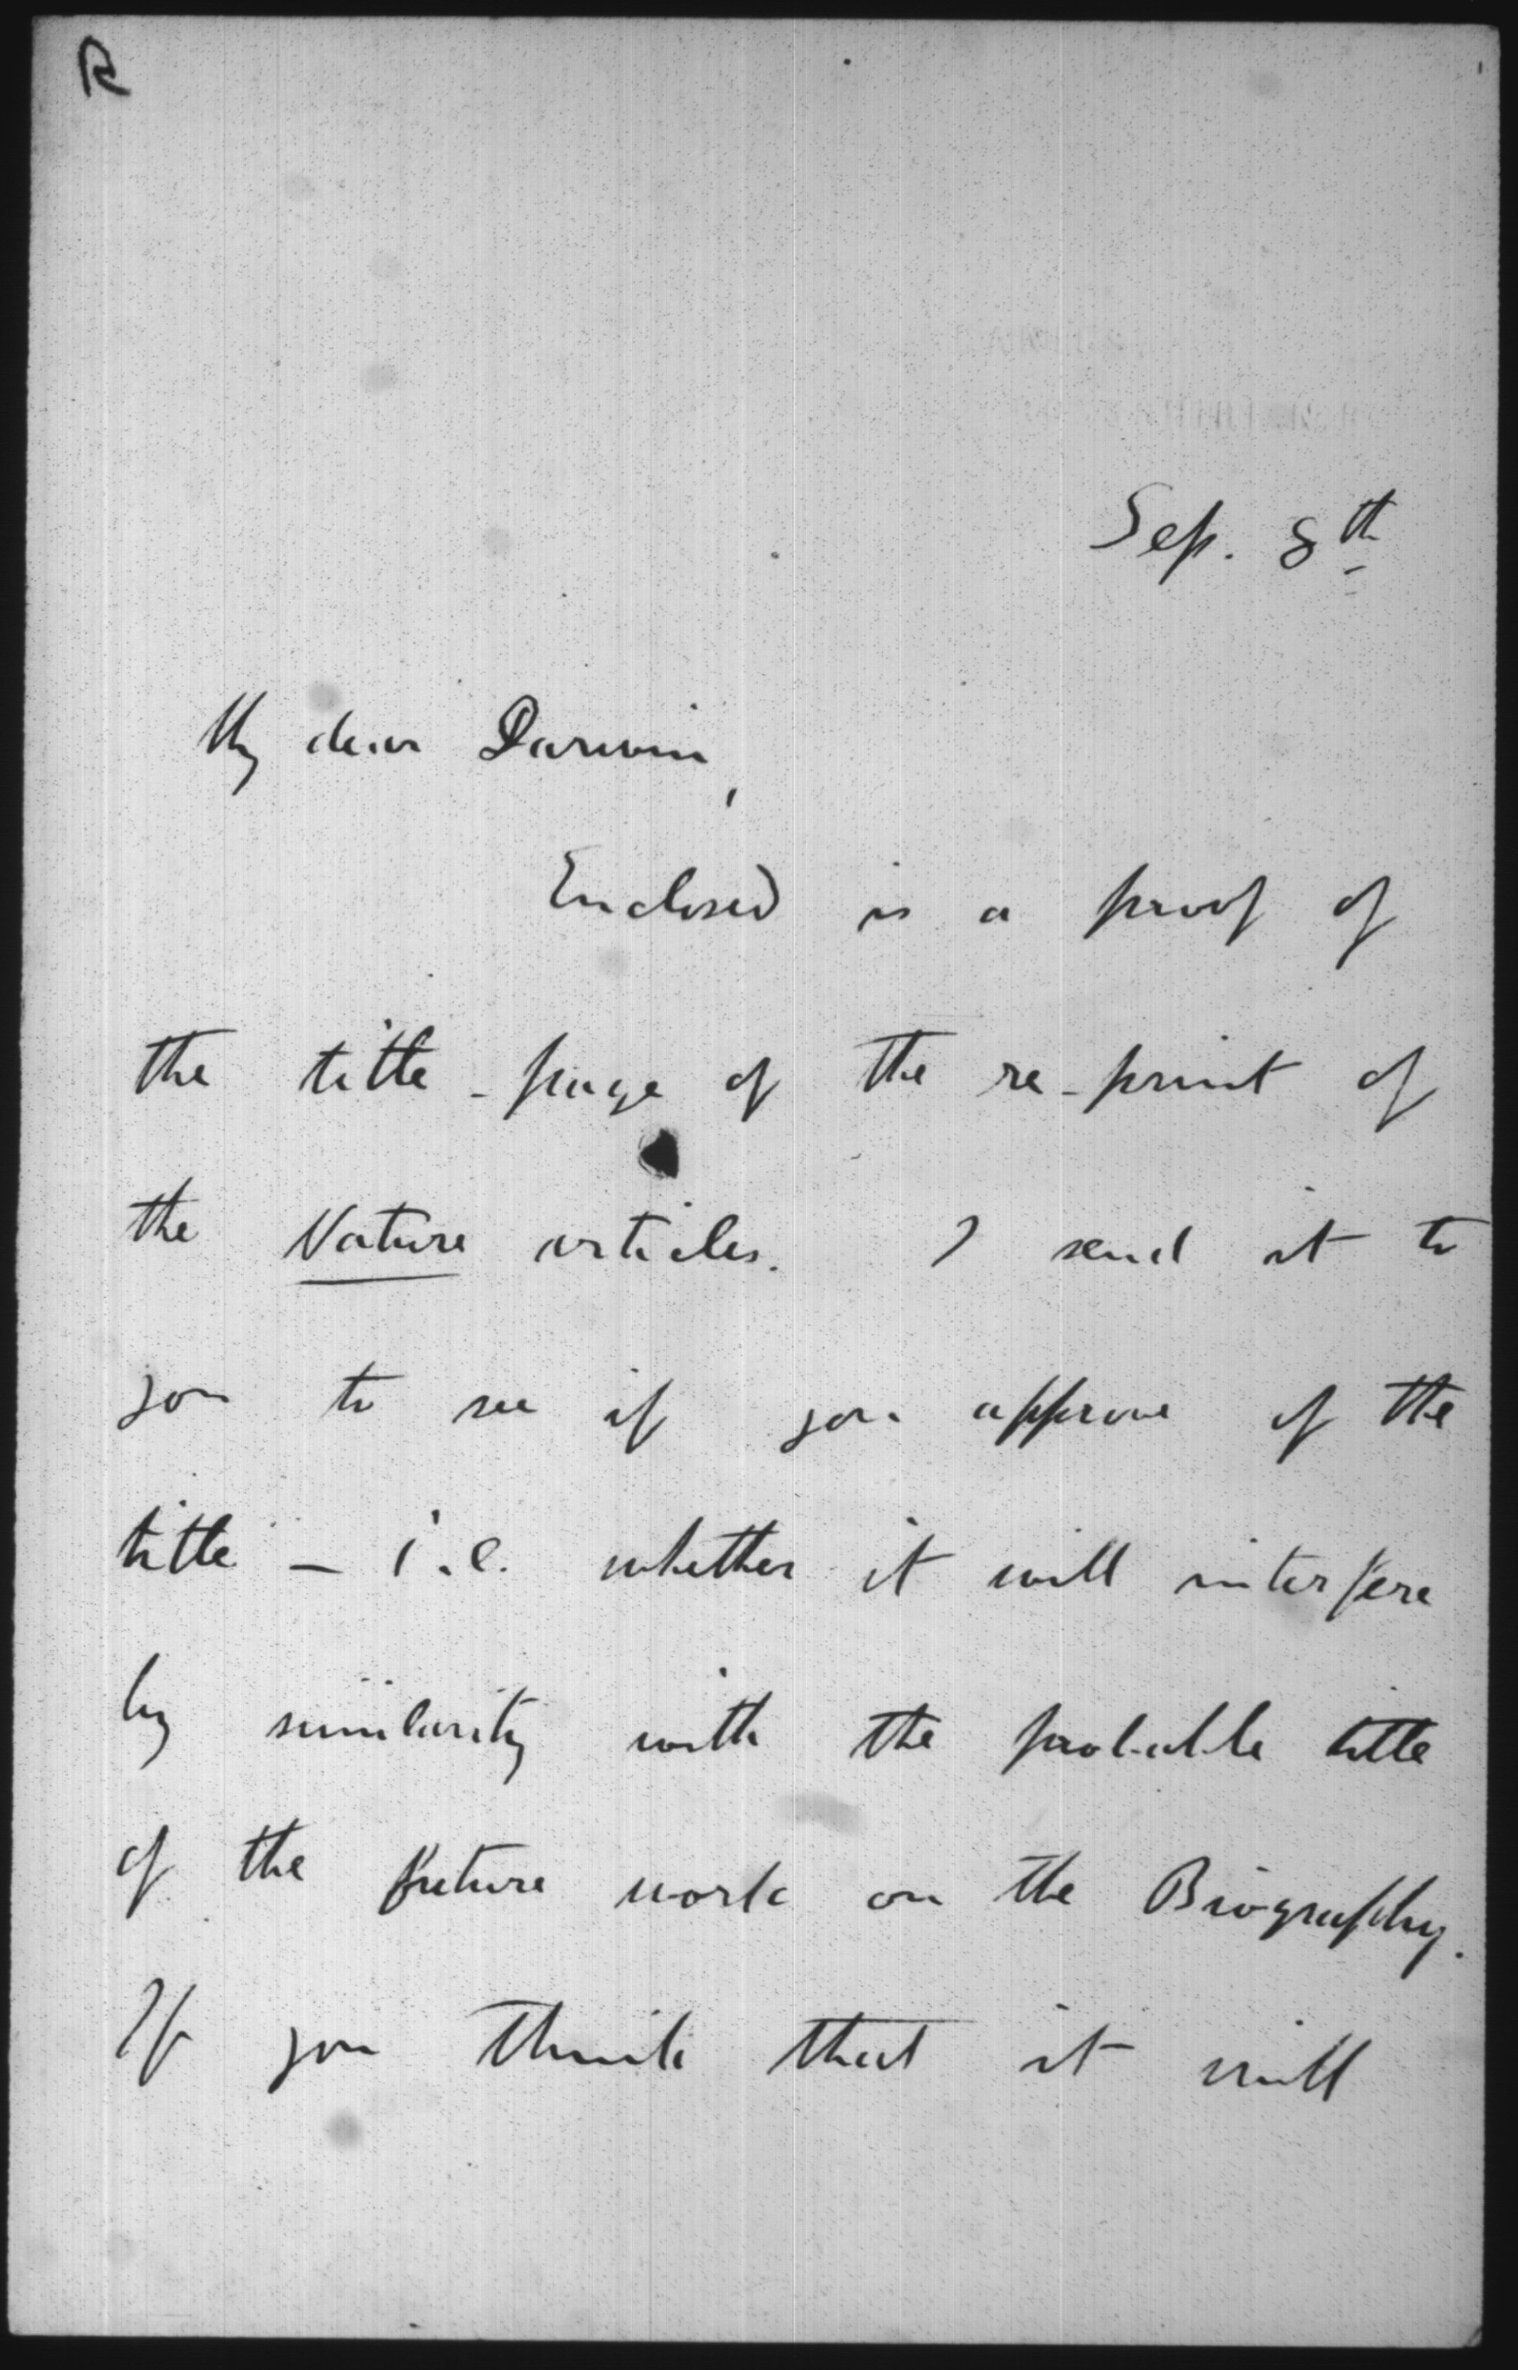 R
Sep. 8th
My dear Darwin,
Enclosed is a proof of
the title-page of the re-print of
the Nature articles. I send it to
you to see if you approve of the
title — i.e. whether it will interfere
by similarity with the probable title
of the future work on the Biography.
If you think that it will